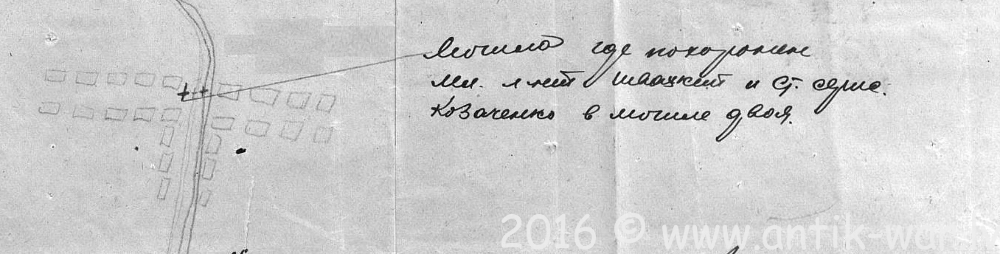 Могила где похоронен
Мл. л-нт Швацкий и Ст. серж.
Козаченко в могиле двоя.
2016 © www.antik-war